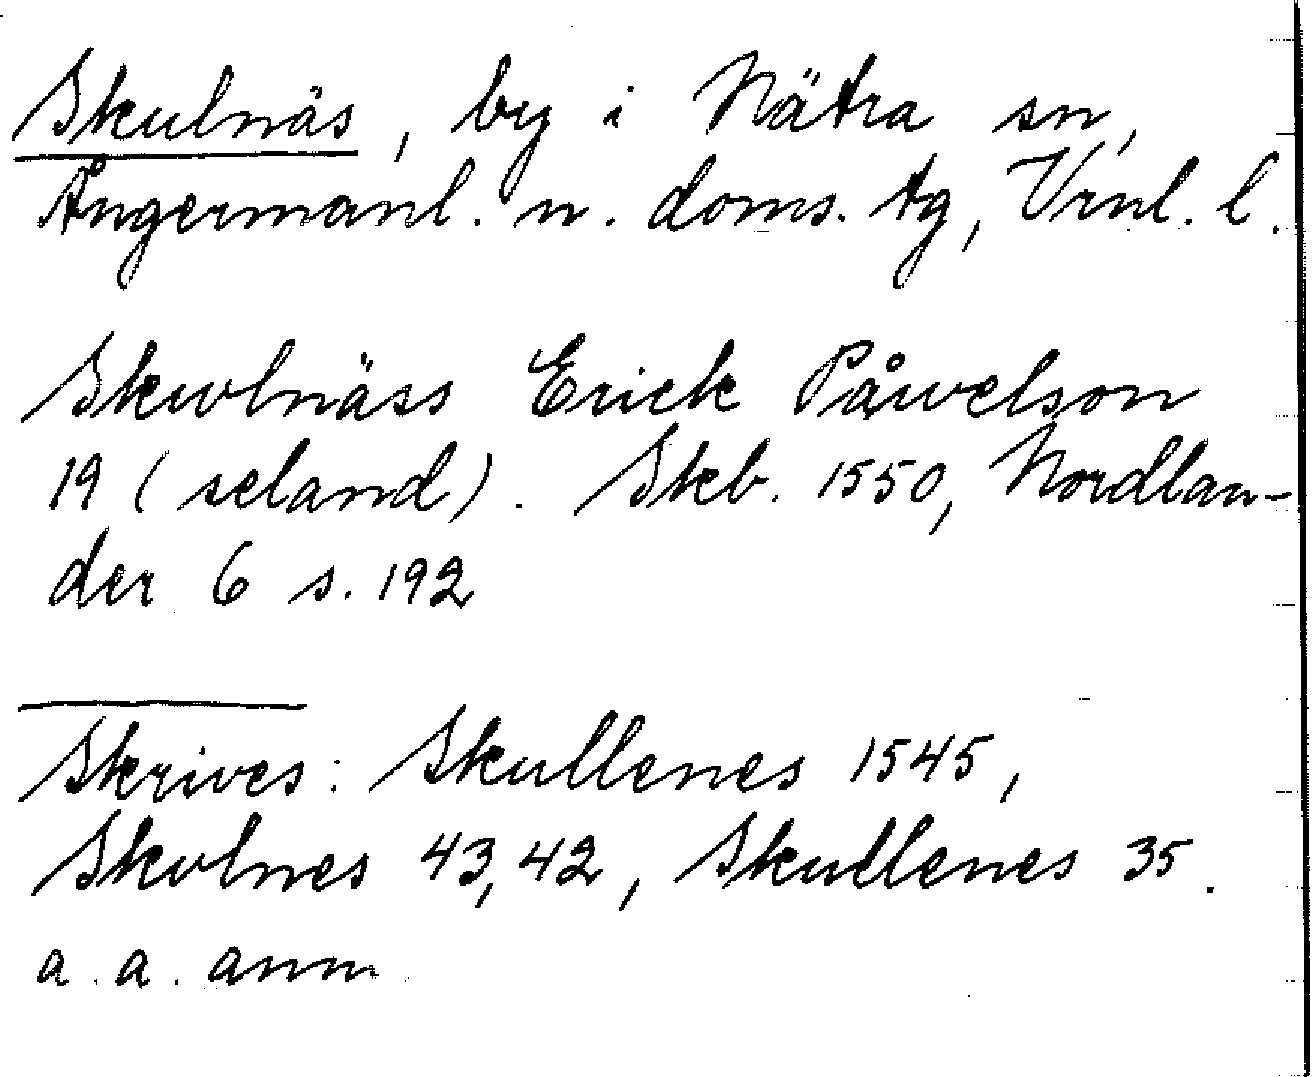 Skulnäs, by i Nätra sn,
Ångermanl. n. doms. tg, Vrnl. l.
Skwlnäss Erick Påwelson
19 (seland). Skb. 1550, Nordlan-
der 6 s. 192
Skrives: Skullenes 1545,
Skvlnes 43,42, Skullenes 35.
a. a. anm